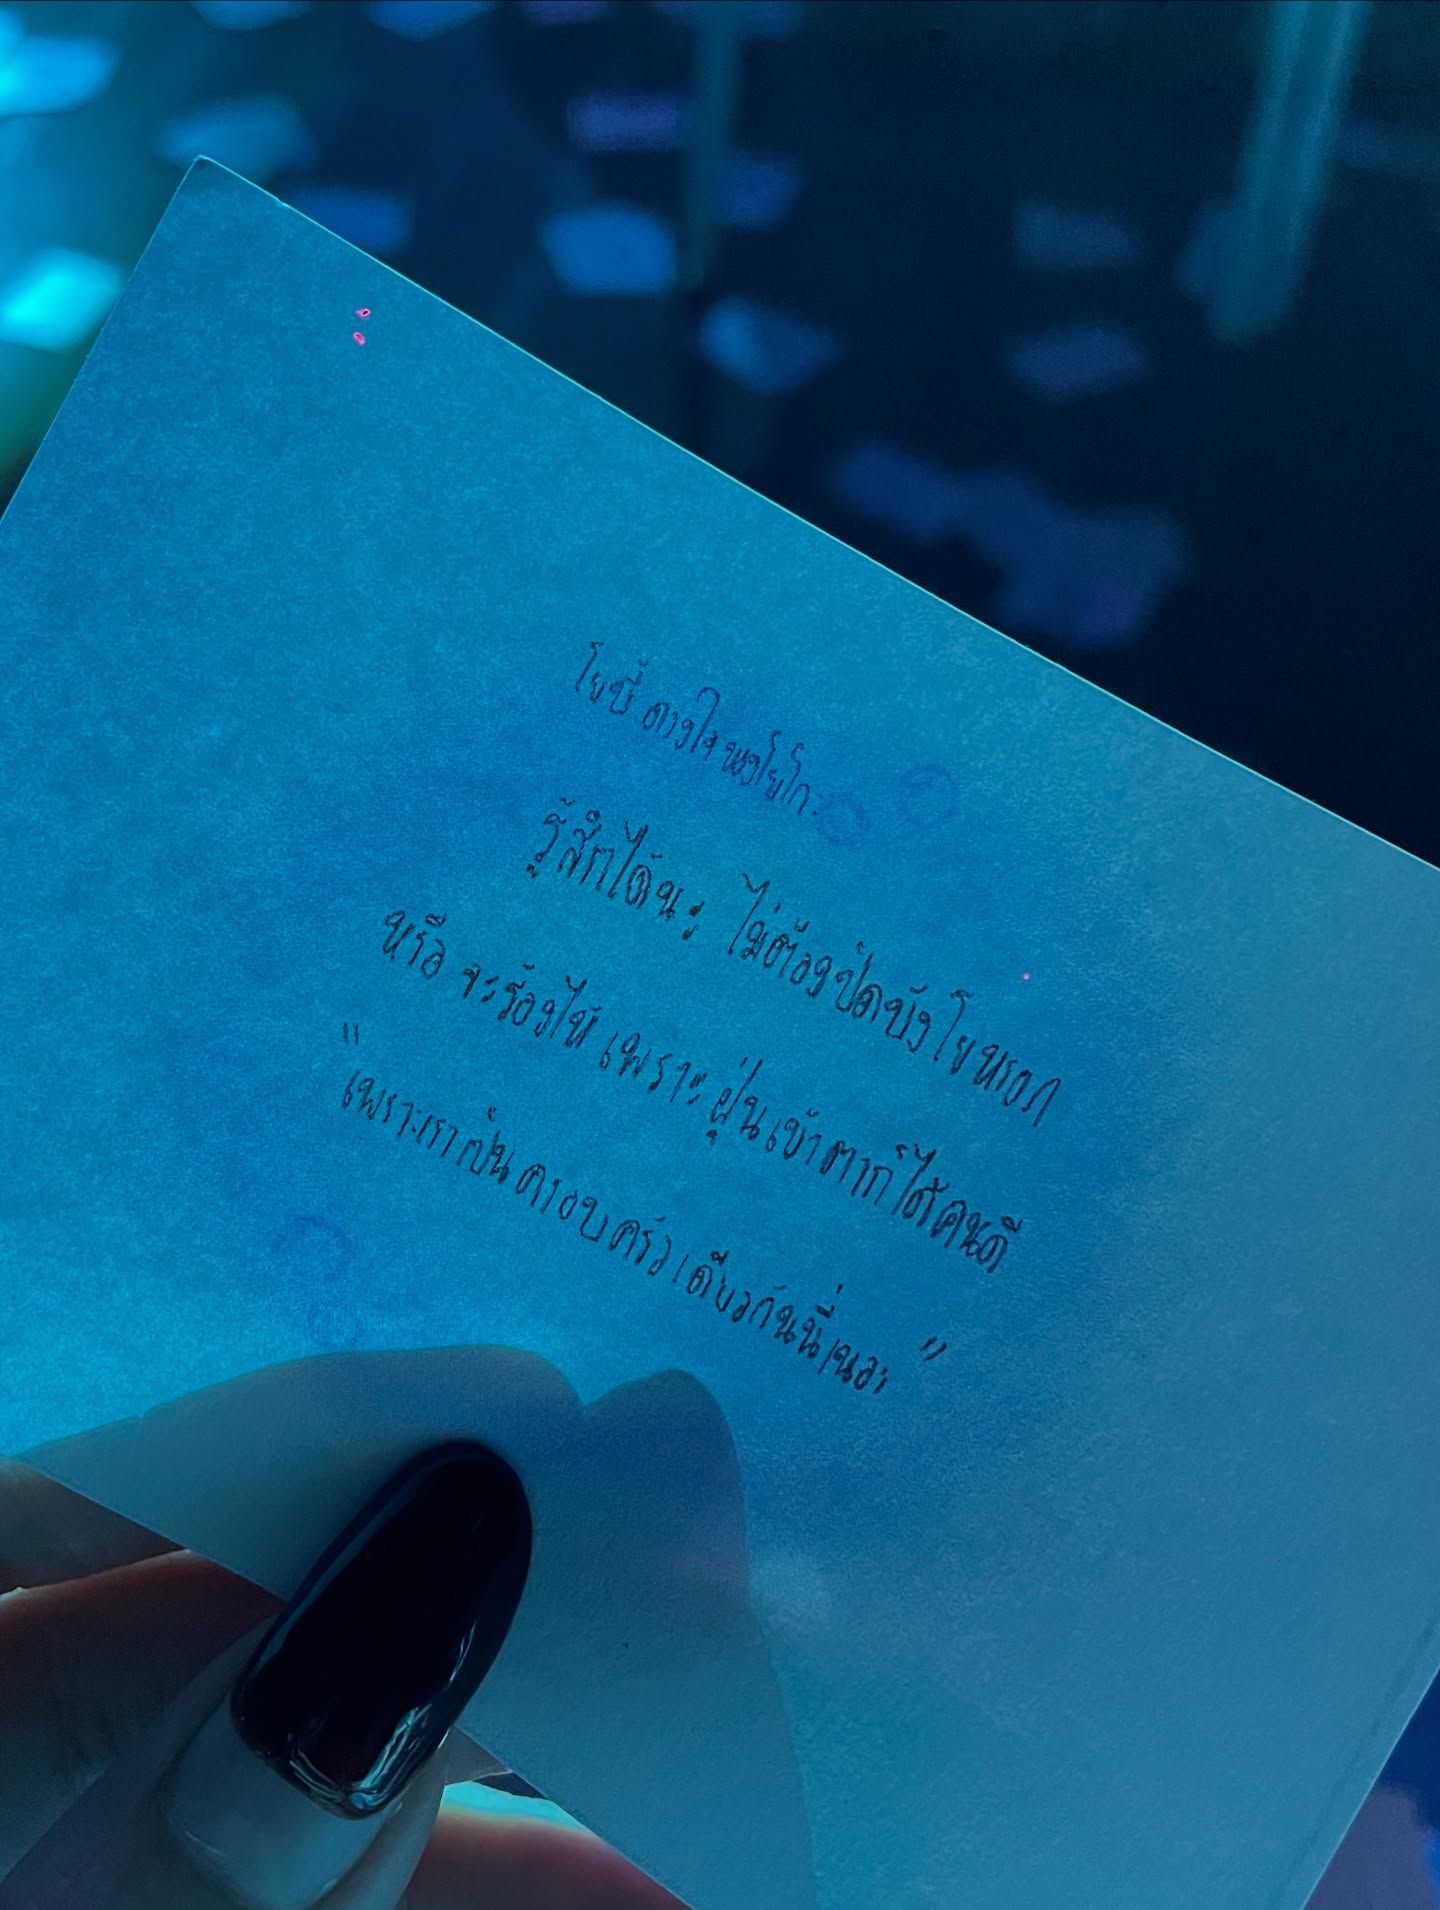 โยบี้ ดวงใจ พวงโยโกะ
รู้สึกได้นะ ไม่ต้องปิดบังโยหรอก
หรือ จะร้องไห้ เพราะ ฝุ่นเข้าตาก็ได้คนดี
"เพราะเราเป็นครอบครัวเดียวกันนี่เนอะ"